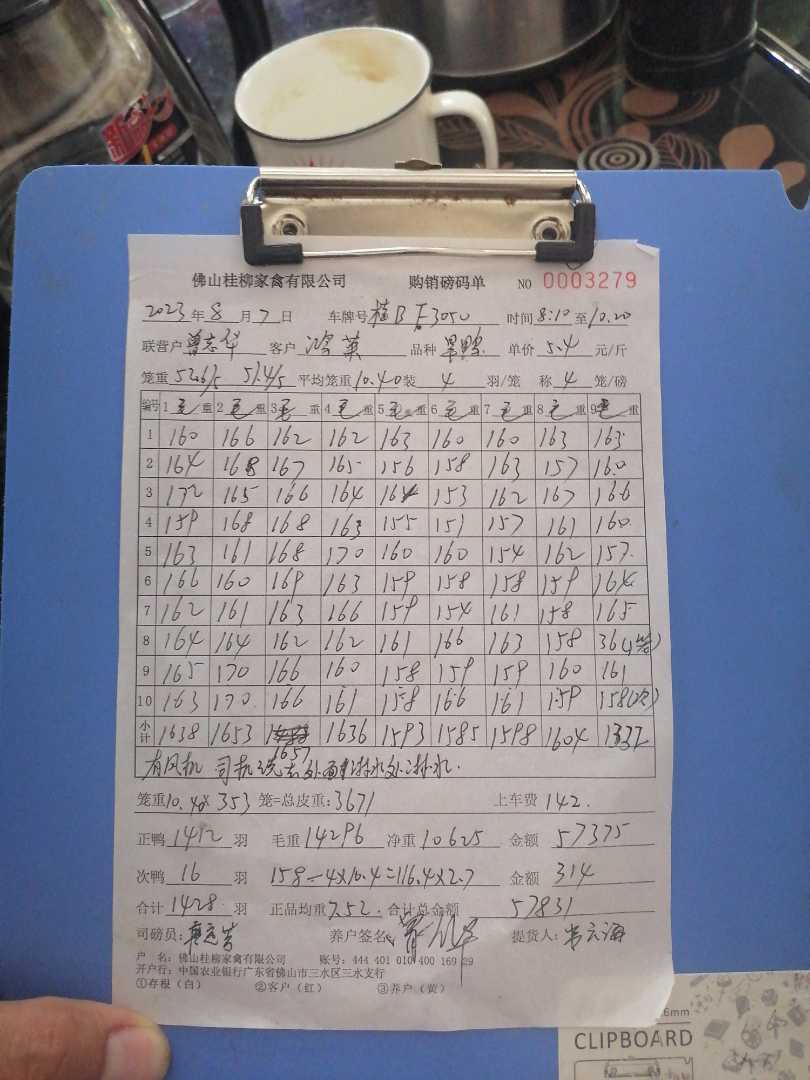 佛山桂柳家禽有限公司 购销磅码单 NO 0003279
2023年8月7日 车牌号 桂BF3050 时间8:10至10.20
联营户 曾志华 客户 鸿英 品种 单价5.4元/斤
笼重 52.6/5 51.4/5 平均笼重10.40装4羽/笼 称4笼/磅
编号 1毛重 2毛重 3毛重 4毛重 5毛重 6毛重 7毛重 8毛重 9毛重
1 160 166 162 162 163 160 160 163 163
2 164 168 167 165 156 158 163 157 160
3 172 165 166 164 164 153 162 167 166
4 159 168 168 163 155 151 157 161 160
5 163 161 168 170 160 160 154 162 157
6 166 160 169 163 159 158 158 159 164
7 162 161 163 166 159 154 161 158 165
8 164 164 162 162 161 166 163 158 36(1笼)
9 165 170 166 160 158 159 159 160 161
10 163 170 166 161 158 166 161 159 158(次)
小计 1638 1653 1657 1636 1593 1585 1598 1604 1332
有风机 司机洗去外面淋水处淋水.
笼重10.4x353笼=总皮重:3671 上车费142.
正鸭1412羽 毛重14296 净重10625 金额57375
次鸭16羽 158-4x10.4=116.4x2.7 金额314
合计1428羽 正品均重7.52. 合计总金额57831
司磅员: 养户签名: 提货人:
户 名: 佛山桂柳家禽有限公司 账号: 444 401 010 400 169 29
开户行: 中国农业银行广东省佛山市三水区三水支行
①存根（白） ②客户（红） ③养户（黄）
6mm
CLIPBOARD